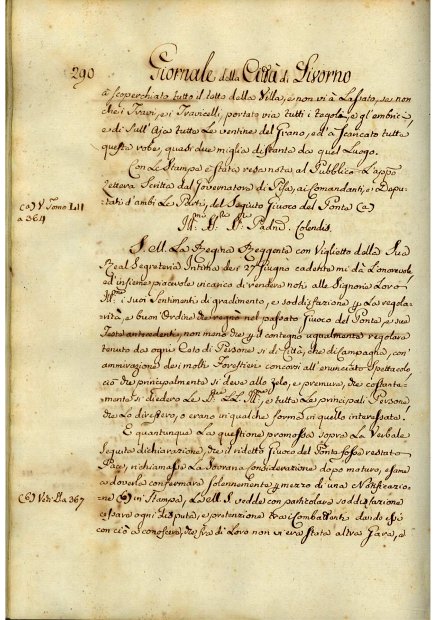 290 Giornale della Città di Livorno
à scoperchiato tutto il tetto della Villa, e non vi à lassato, se non
che i Travi, e i Travicelli, portato via tutti i tegoli, e gl'embrici
e di sull'Aja tutte le ventine del Grano, ed à scaricato tutte
queste robe, quasi due miglia distante da quel Luogo.
Con le Stampa è stata resa nota al Pubblico l'appo
Lettera scritta dal Governatore di Pisa, ai Comandanti, e Depu-
tati d'ambi le Parti, del seguito Giuoco del Ponte (a)
(a) V. Tomo LII
a 364
Padni Colendis.
S. M. La Regina Reggente con Viglietto della Sua
Real Segreteria Intima de' 27 Giugno cadette mi dà l'onorevole
ed insieme piacevole incarico di rendere noti alle Signorie Loro
Ill.me i suoi Sentimenti di gradimento, e soddisfazione p la regola-
rità, e buon Ordine che regnò nel passato Giuoco del Ponte, e sue
Feste antecedenti, non meno che p il contegno ugualmente regolare
tenuto da ogni Ceto di Persone sì di Città, che di Campagna, con
ammirazione dei molti Forestieri concorsi all'enunciato Spettacolo,
ciò che principalmente si deve allo zelo, e premura, che costante-
mente si diedero le e tutte le principali Persone
che lo diressero, o erano in qualche forma in quello interessate.
E quantunque la questione promossa sopra la Verbale
seguita dichiarazione, che il ridetto Giuoco del Ponte fosse restato
Pace, richiamasse la Sovrana Considerazione dopo maturo esame
a doverla confermare solennemente p mezzo di una Notificazio-
ne (b) in Stampa, la M. S. vedde con particolare soddisfazione
(b) Vedi a 367
cessare ogni disputa, e pretenzione tra i Combattenti dando essi
con ciò a conoscere, che fra di Loro non vi era stata altra Gara, e